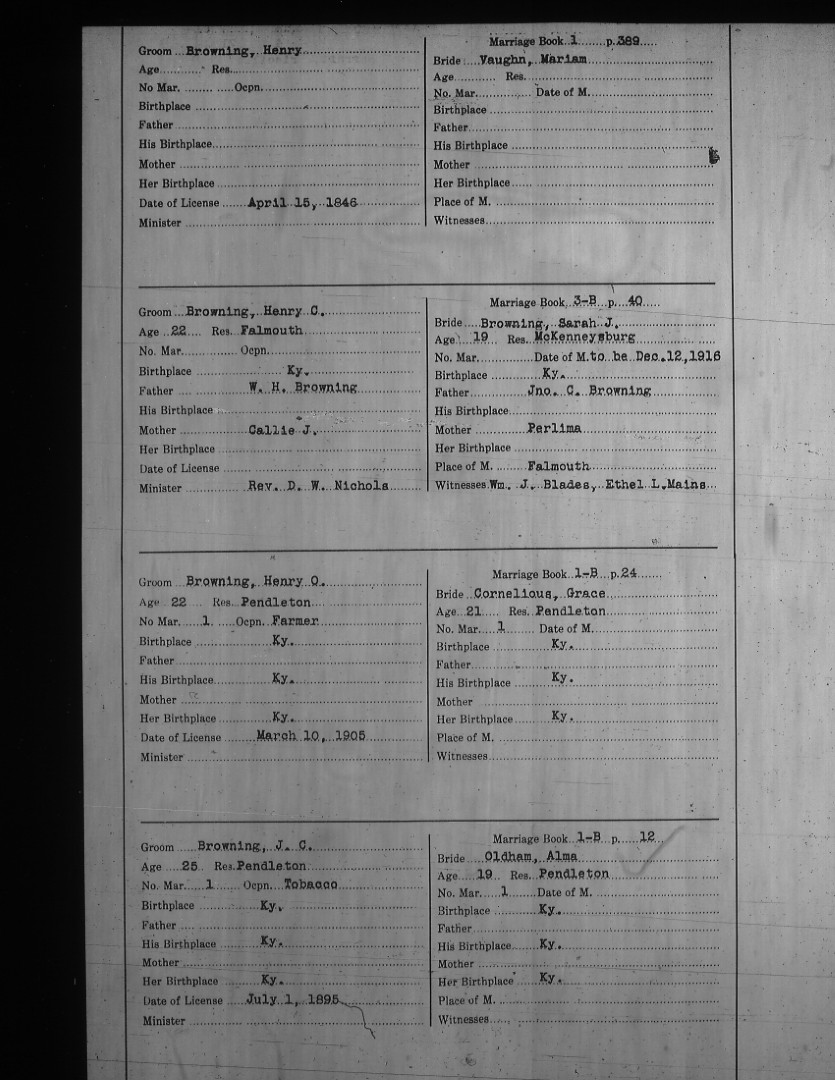 Groom Browning, Henry
Age Res.
No Mar. Ocpn.
Birthplace
Father
His Birthplace
Mother
Her Birthplace
Date of License April 15, 1846
Minister
Marriage Book 1 p. 389
Bride Vaughn, Mariam
Age Res.
No. Mar. Date of M.
Birthplace
Father
His Birthplace
Mother
Her Birthplace
Place of M.
Witnesses
Groom Browning, Henry C.
Age 22 Res. Falmouth
No. Mar. Ocpn.
Birthplace Ky.
Father W. H. Browning
His Birthplace
Mother Callie J.
Her Birthplace
Date of License
Minister Rev. D. W. Nichols
Marriage Book 3-B p. 40
Bride Browning, Sarah J.
Age 19 Res. McKenneysburg
No. Mar. Date of M. to be Dec. 12, 1916
Birthplace Ky.
Father Jno. C. Browning
His Birthplace
Mother Perlima
Her Birthplace
Place of M. Falmouth
Witnesses Wm. J. Blades, Ethel L. Mains
Groom Browning, Henry O.
Age 22 Res. Pendleton
No Mar. 1. Ocpn. Farmer
Birthplace Ky.
Father
His Birthplace Ky.
Mother
Her Birthplace Ky.
Date of License March 10, 1905
Minister
Marriage Book 1-B p. 24
Bride Cornelious, Grace
Age 21 Res. Pendleton
No. Mar. 1 Date of M.
Birthplace Ky.
Father
His Birthplace Ky.
Mother
Her Birthplace Ky.
Place of M.
Witnesses
Groom Browning, J. C.
Age 25 Res. Pendleton
No. Mar. 1 Ocpn. Tobacco
Birthplace Ky.
Father
His Birthplace Ky.
Mother
Her Birthplace Ky.
Date of License July 1, 1895
Minister
Marriage Book 1-B p. 12
Bride Oldham, Alma
Age 19 Res. Pendleton
No. Mar. 1 Date of M.
Birthplace Ky.
Father
His Birthplace Ky.
Mother
Her Birthplace Ky.
Place of M.
Witnesses